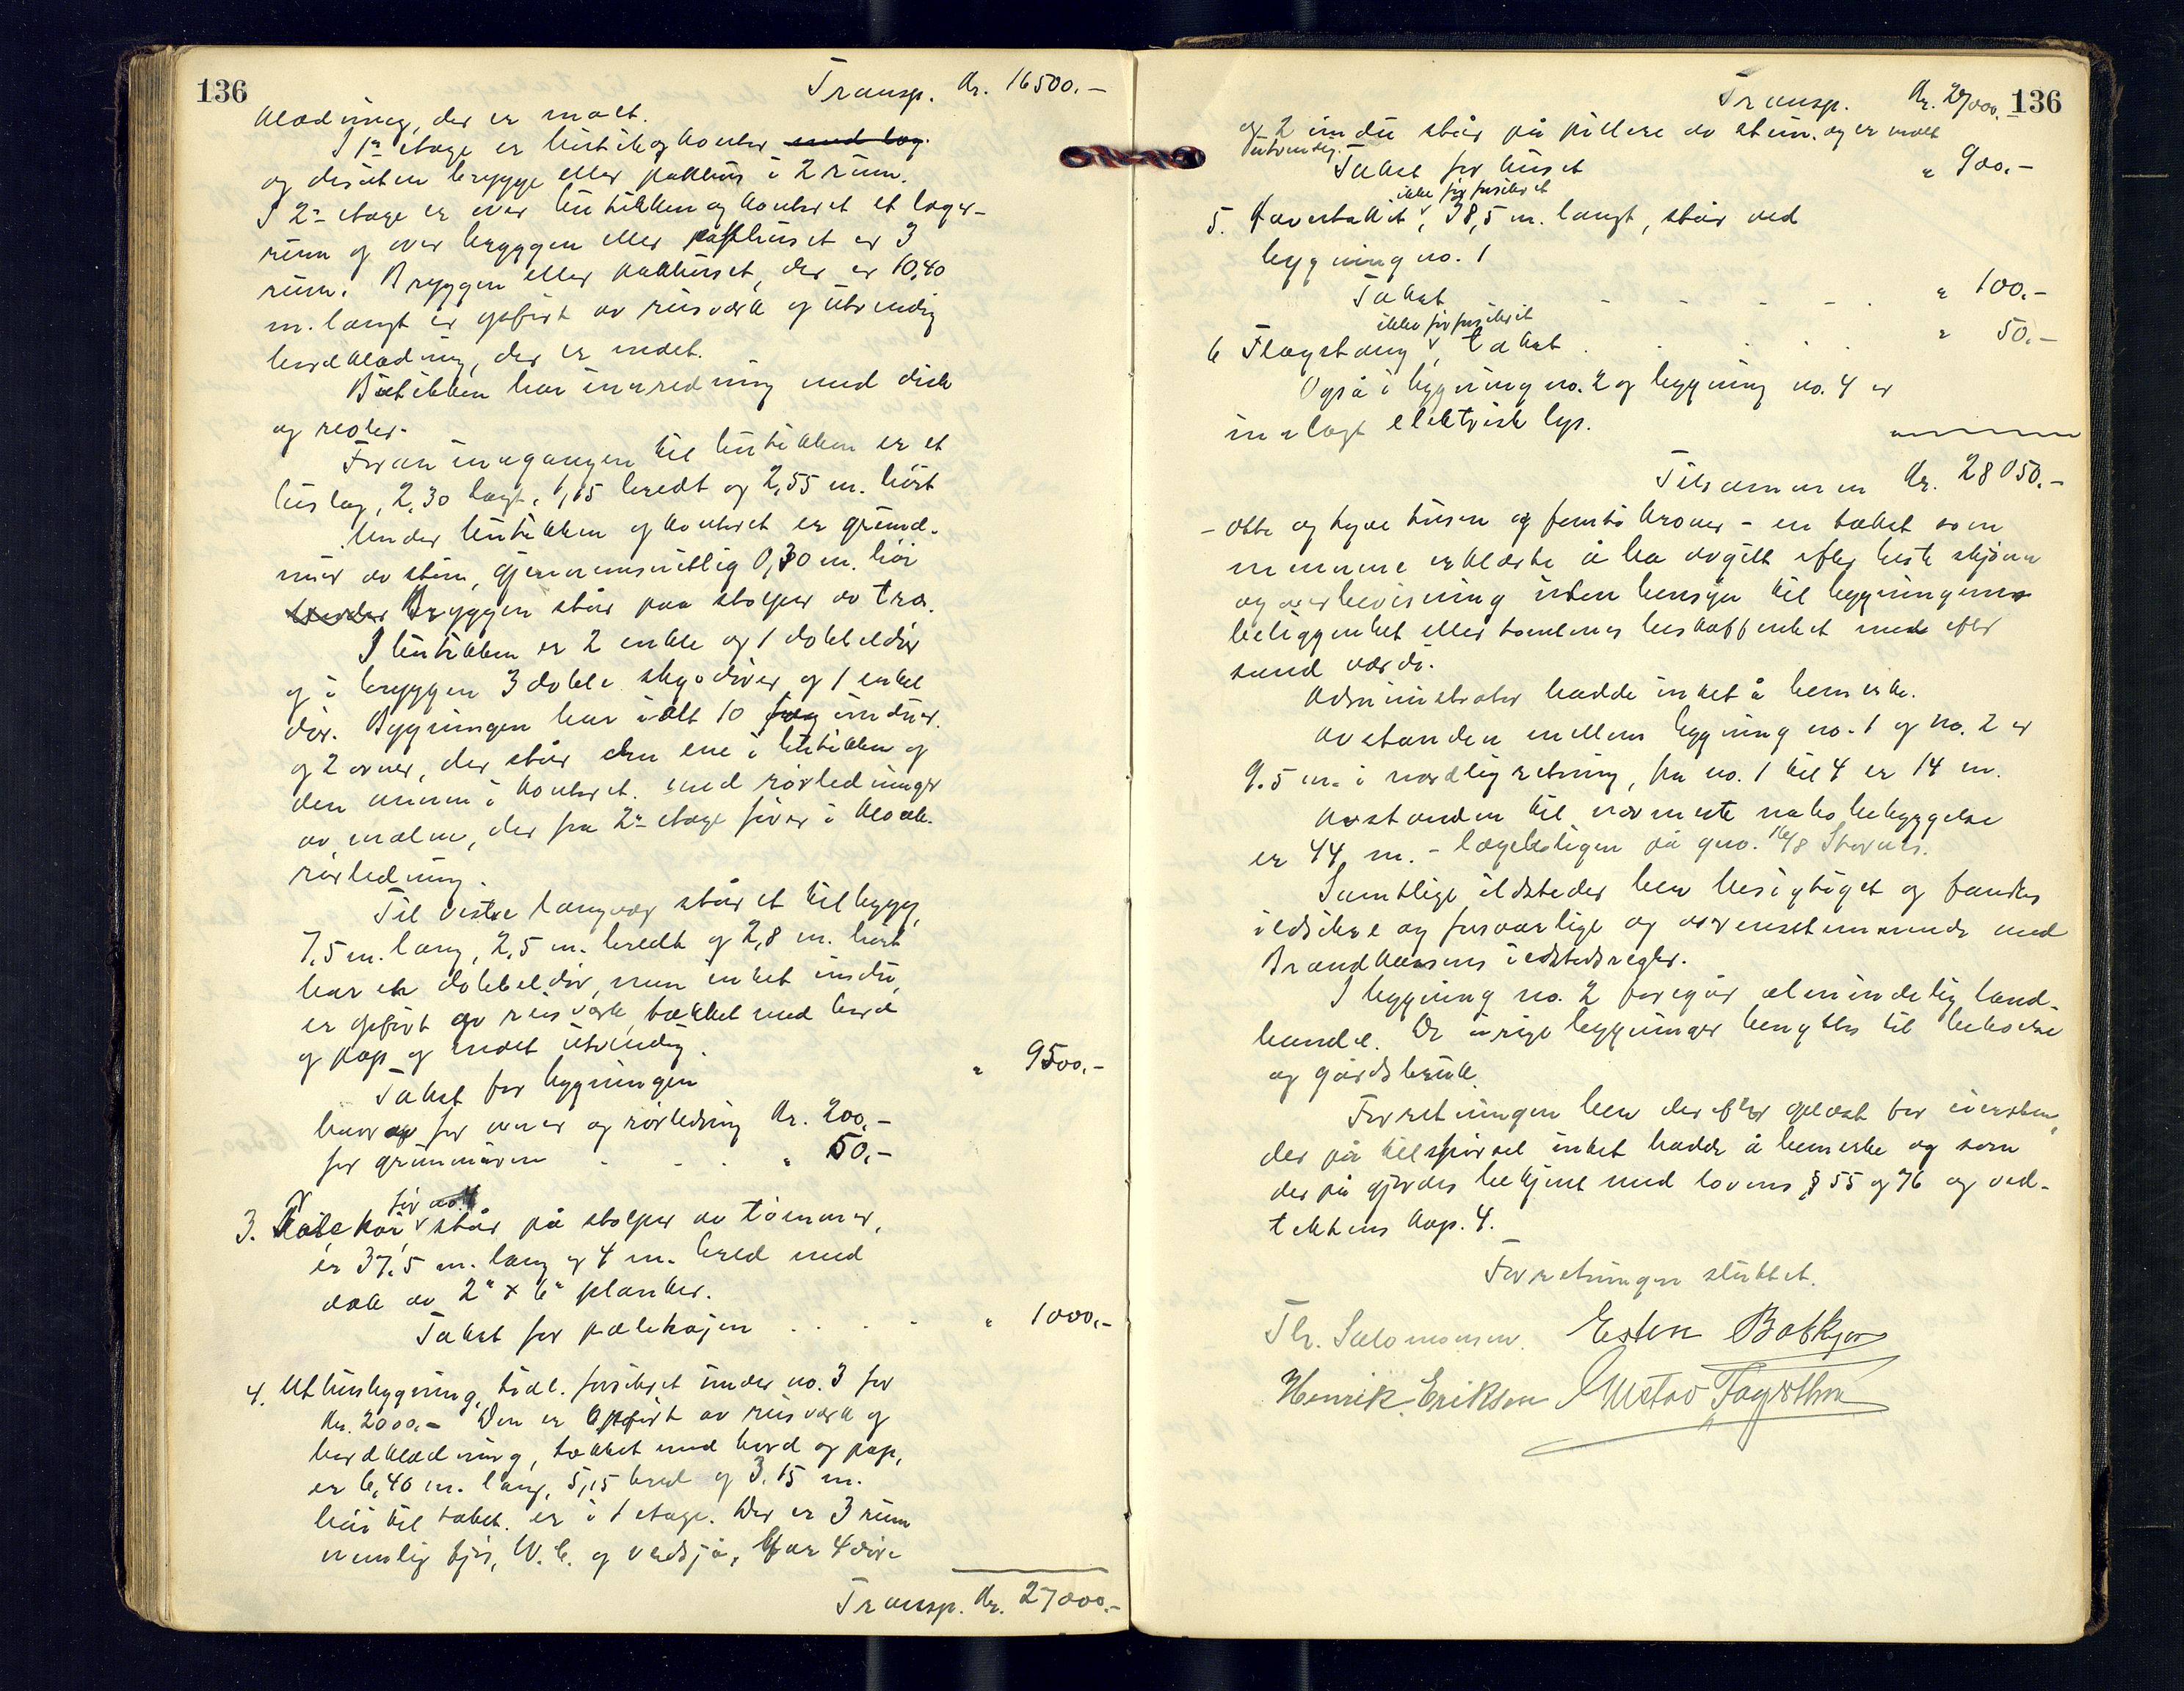 136
Transp. Kr. 16500.-
klædning, der er malt.
I 1ste etage er butik og kontor med lag.
og desuten brygge eller pakhus i 2 rum.
I 2n etage er over butikken og kontoret et lager-
rum og over bryggen eller pakhuset er 3
rum. Bryggen eller pakhuset, der er 10,40
m. langt er opført av reisverk og utvendig
bordklædning, der er malet.
Butikken har innredning med disk
og reoler.
Foran inngangen til butikken er et
bislag, 2,30 langt, 1,15 bredt og 2,55 m. høit
Under butikken og kontoret er grund-
mur av sten, gjennemsnitlig 0,30 m. høi
Under Bryggen står paa stolper av træ.
I butikken er 2 enkle og 1 dobbeldør
og i bryggen 3 doble skyvdører og 1 enkel
dør. Bygningen har i alt 10 fag induer.
og 2 ovner, der står den ene i butikken og
den annen i kontoret. med rørledninger
av malm, der fra 2n etage fører i
rørledning.
Til vestre langvæg står et tilbygg,
7,5 m. lang, 2,5 m. bredt og 2,8 m. høit
har en dobbeldør, men intet indu,
er opført av reisverk, tækket med bord
og pap og malet utvendig.
Takst for bygningen " 9500.-
herav for ovner og rørledning Kr. 200.-
for grunmuren . - - . " 50.-
3. Pælekai står på stolper av tømmer,
er 37,5 m. lang og 4 m. bred med
dæk av 2" x 6" planker.
Takst for pælekajen . . . - " 1000.-
4. Uthusbygning, tidl. forsikret under no. 3 for
Kr. 2000.- Den er opført av reisverk og
bordklædning, tækket med bord og pap,
er 6,40 m. lang, 5,15 bred og 3.15 m.
høi til taket. er i 1 etage. Der er 3 rum
nemlig fjøs, W.C. og vedsjå, har 4 døre
Transp. Kr. 27000.-
Transp. Kr. 27000.- 136
og 2 indu står på pillere av sten. og er malt
utvendig.
Takst for huset " 900.-
ikke før forsikret
5. Haverstakit, 38,5 m. langt, står ved
bygning no. 1
Takst - - - - . " 100.-
ikke før forsikret
6 Flagstang, takst . . . . " 50.-
Også i bygning no. 2 og bygning no. 4 er
innlagt elektrisk lys.
Tilsammen Kr. 28050.-
- otte og tyve tusen og femti kroner - en takst som
mennene erklærte å ha avgitt efter beste skjønn
og overbevisning uten hensyn til bygningens
beliggenhet eller tomtenes beskaffenhet men efter
sand værdi.
Administrator hadde intet å bemerke.
Avstanden mellem bygning no. 1 og no. 2 er
9.5 m. i nordlig retning, fra no. 1 til 4 er 14 m.
Avstanden til nærmeste nabobebyggelse
er 44 m. - lægeboligen på gno. 16/8 Stornes.
Samtlige ildsteder blev besigtiget og fandtes
ildsikre og forsvarlige og overensstemmende med
Brandkassens ildstedsregler.
I bygning no. 2 foregår almindelig land-
handel. De øvrige bygninger benyttes til beboelse
og gårdsbruk.
Forretningen blev derefter oplæst for eieren,
der på tilspørsel intet hadde å bemerke og som
derpå gjordes bekjent med lovens § 55 og 76 og ved-
tektens kap. 4.
Forretningen sluttet.
Th. Salomonsen. Esten Botkjær
Henrik Eriksen Gustav Fagerthun